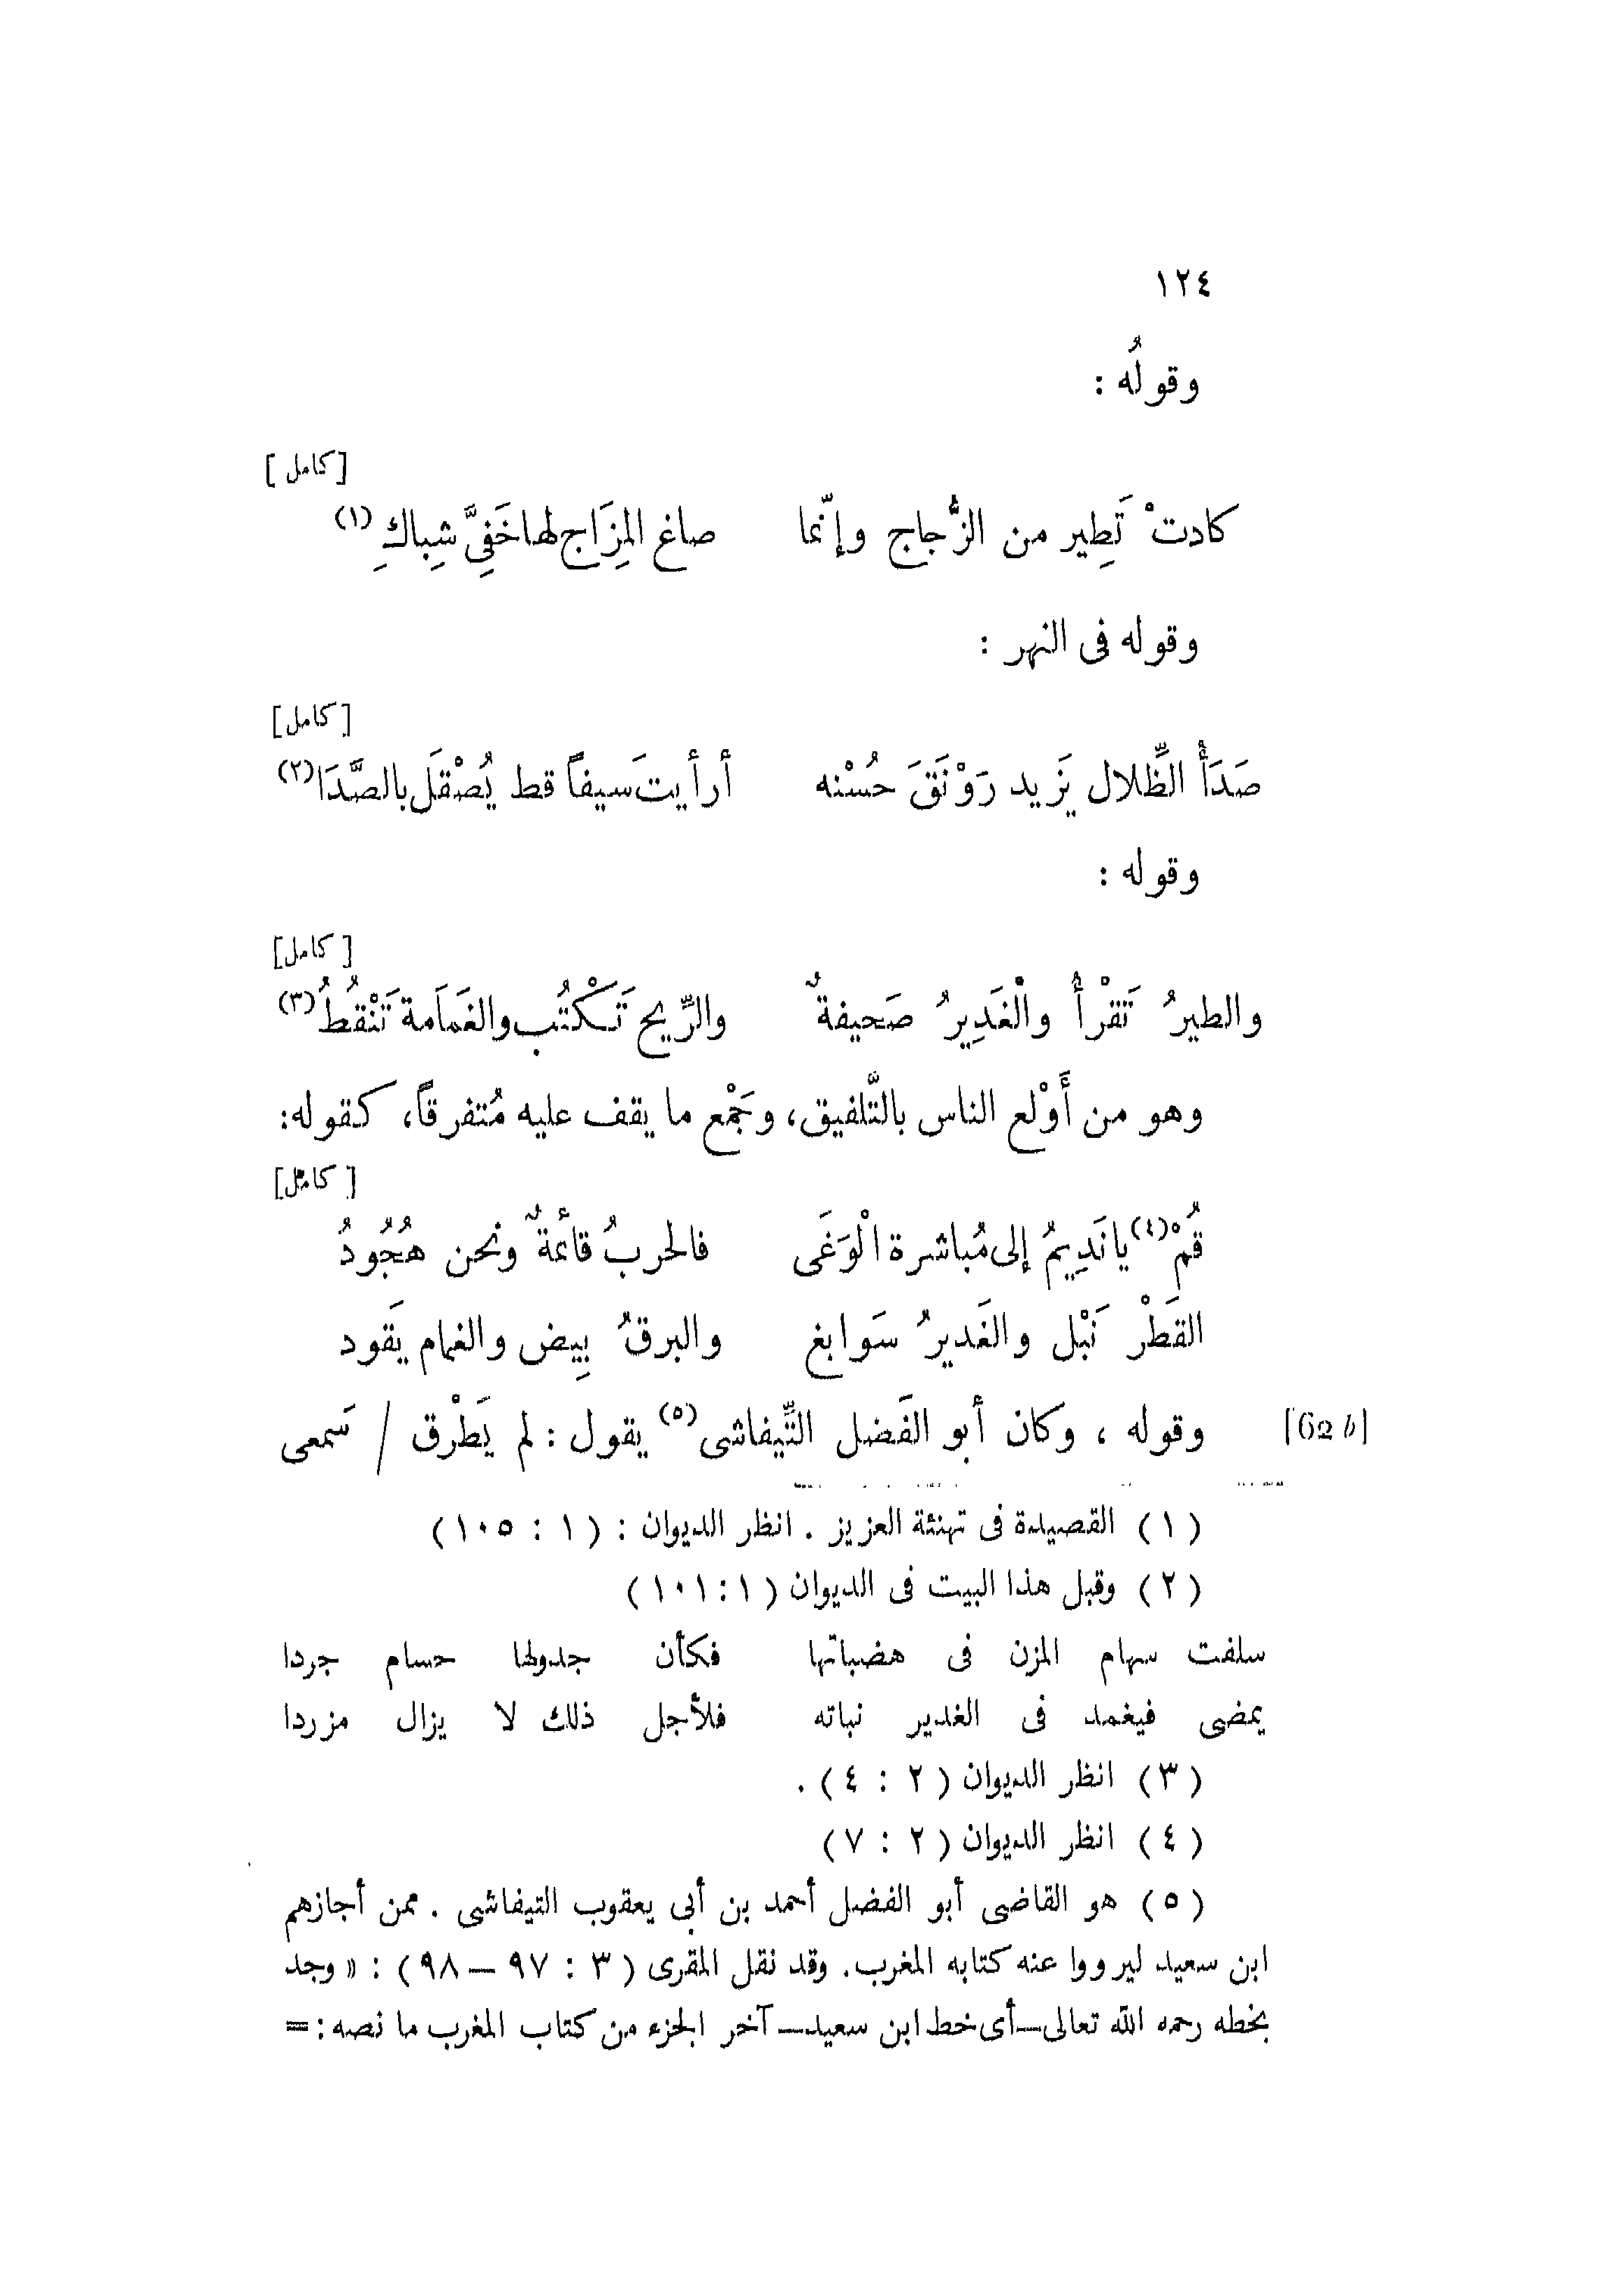 ١٢٤
وقولُه :
[كامل]
كادتْ تَطِير من الزُّجاج وإنّما صاغ المِزَاج لها خَفِىَّ شِباكِ (١)
وقوله فى النهر :
[كامل]
صَدَأُ الظِّلال يَزِيد رَوْنَقَ حُسْنه أرأيتَ سيفاً قط يُصْقَل بالصَّدَا (٢)
وقوله :
[كامل]
والطيرُ تَقْرأُ والْغَدِيرُ صَحيفةٌ والرِّيح تَكْتُب والغَمَامة تَنْقُطُ (٣)
وهو من أَوْلع الناس بالتَّلفيق، وجَمْع ما يقف عليه مُتفرقاً، كقوله:
[كامل]
قُمْ (٤) يا نَدِيمُ إلى مُباشرة الْوَغَى فالحربُ قائمةٌ ونحن هُجُودُ
القَطْر نَبْل والغَديرُ سَوابغ والبرقُ بِيض والغمام يَقود
[62 b] وقوله ، وكان أبو الفَضل التِّيفاشى (٥) يقول : لم يَطْرق / سَمعى
(١) القصيدة فى تهنئة العزيز . انظر الديوان : (١ : ١٠٥)
(٢) وقبل هذا البيت فى الديوان (١ : ١٠١)
سلفت سهام المزن فى هضباتها فكأن جدولها حسام جردا
يمضى فيغمد فى الغدير نباته فلأجل ذلك لا يزال مزردا
(٣) انظر الديوان (٢ : ٤) .
(٤) انظر الديوان (٢ : ٧)
(٥) هو القاضى أبو الفضل أحمد بن أبى يعقوب التيفاشى . ممن أجازهم
ابن سعيد ليرووا عنه كتابه المغرب. وقد نقل المقرى (٣ : ٩٧ – ٩٨) : « وجد
بخطه رحمه الله تعالى – أى خط ابن سعيد – آخر الجزء من كتاب المغرب ما نصه : =